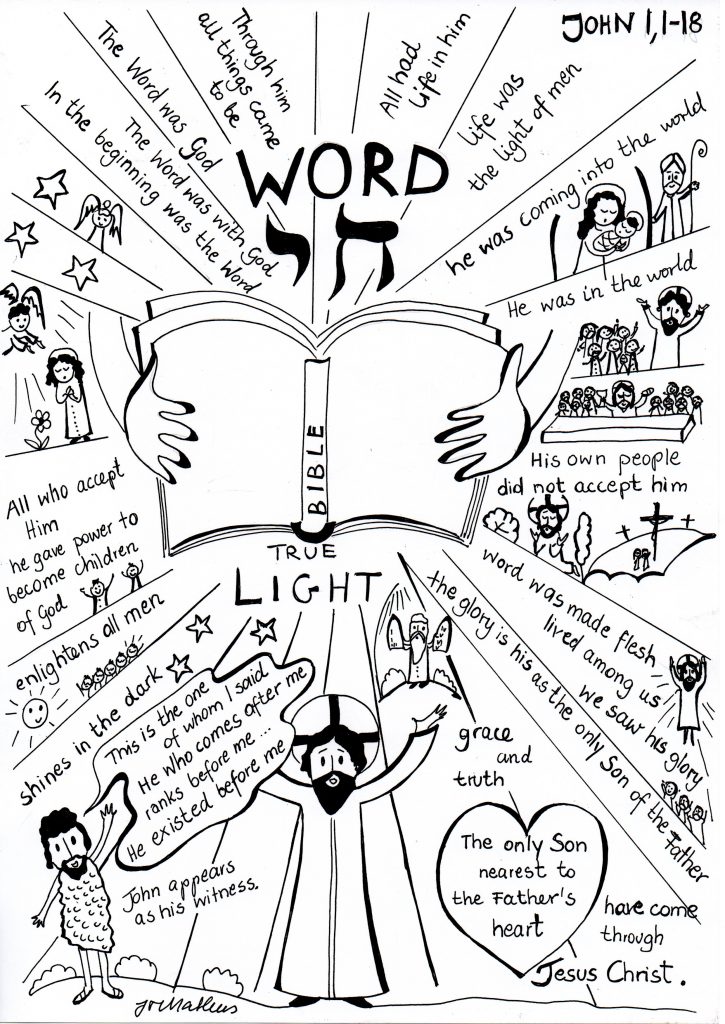 JOHN 1,1-18
In the beginning was the Word
The Word was with God
The Word was God
Through him
all things came
to be
All had
life in him
Life was
the light of men
WORD
חי
he was coming into the world
He was in the world
BIBLE
His own people
did not accept him
All who accept
Him
he gave power to
become children
of God
TRUE
LIGHT
enlightens all men
shines in the dark
word was made flesh
lived among us
we saw his glory
the glory is his as the only Son of the Father
This is the one
of whom I said
He who comes after me
ranks before me...
He existed before me
grace
and
truth
The only Son
nearest to
the Father's
heart
John appears
as his witness.
have come
through
Jesus Christ.